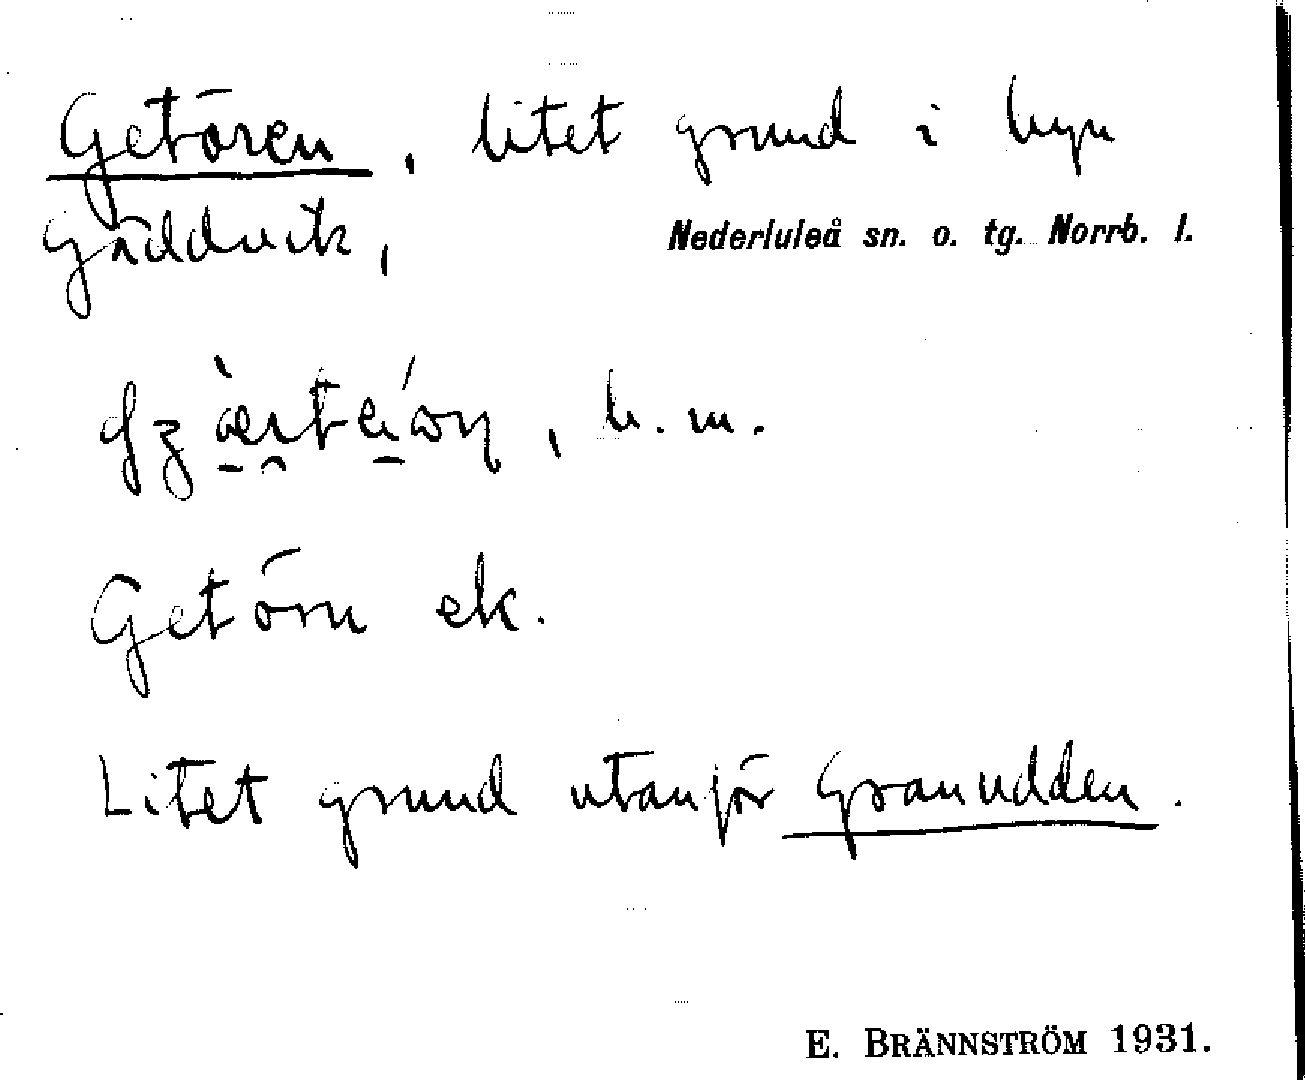 Getören, litet grund i byn
Gäddvik,
Nederluleå sn. o. tg. Norrb. l.
, b. m.
Getörn ek.
Litet grund utanför Granudden.
E. BRÄNNSTRÖM 1931.